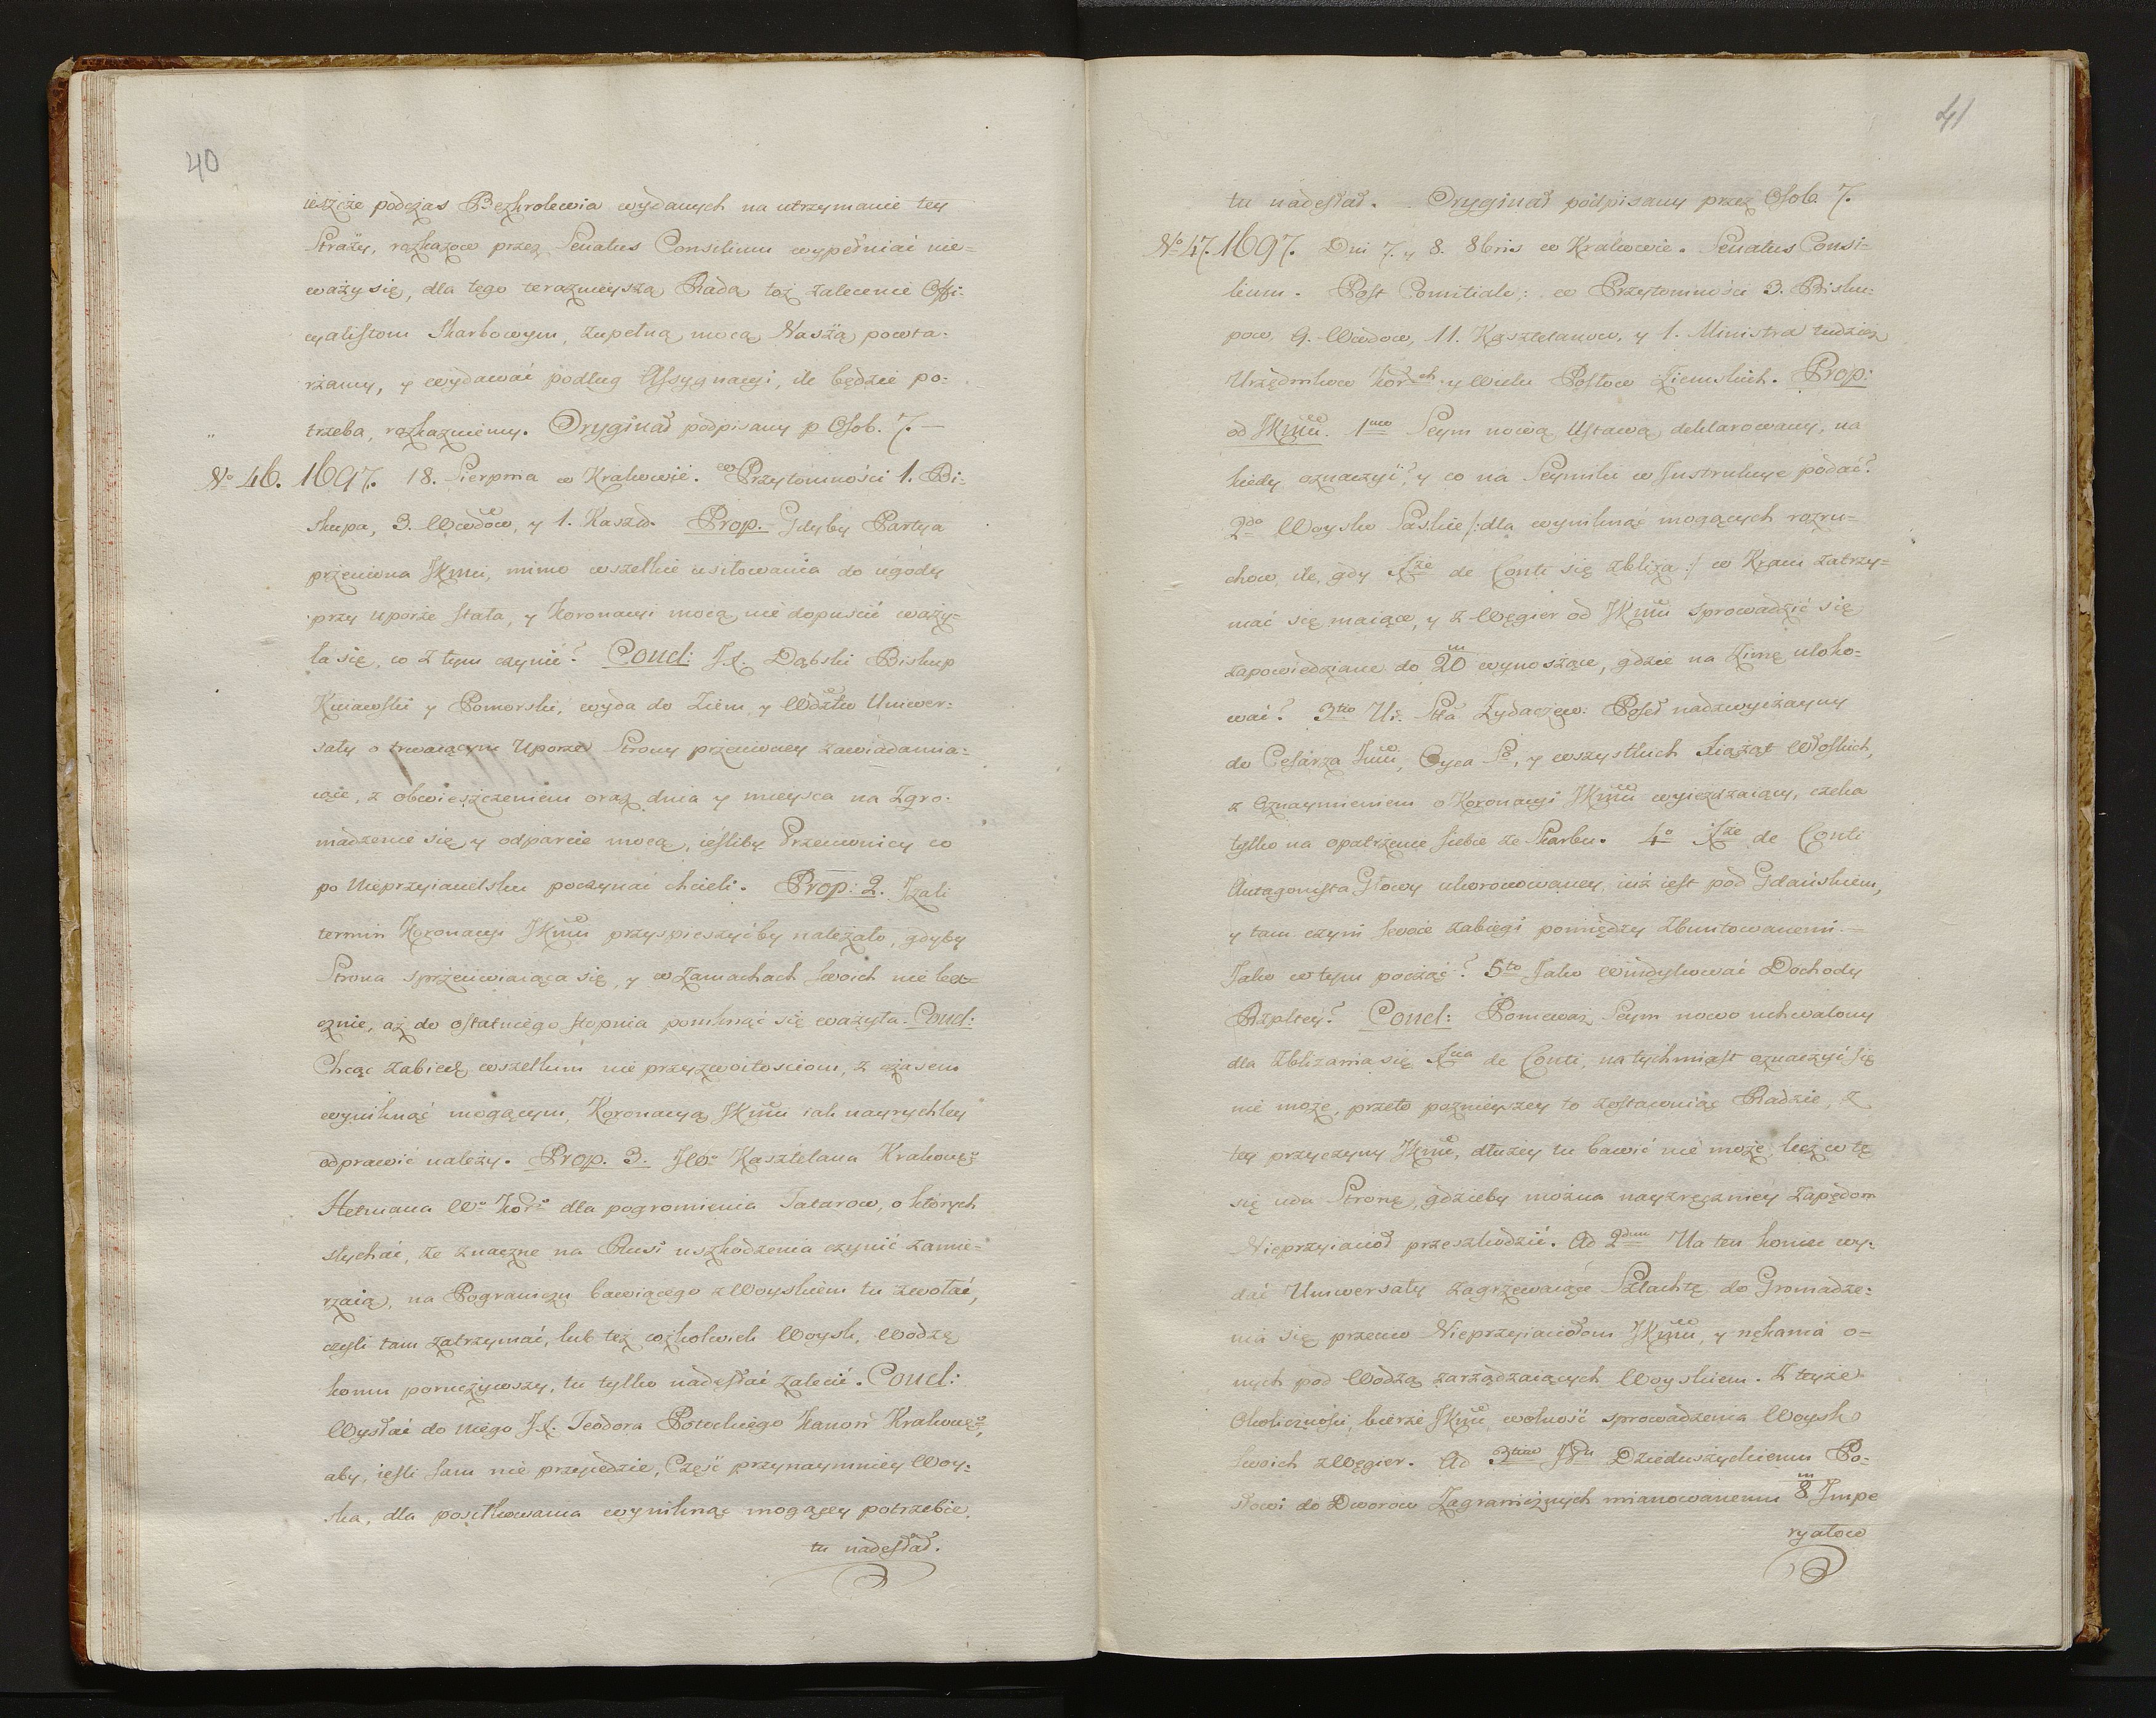 40
ieszcze podczas Bezkrolewia wydanych na utrzymanie tey
Straży, rozkazow przez Senatus Consilium wypełniać nie=
waży się, dla tego teraznieysza Rada toż zalecenie Offi-
cyalistom Skarbowym, zupełną mocą Naszą powta-
rzamy, y wydawać podług Assygnacyi, ile będzie po-
trzeba, rozkazuiemy. Oryginał podpisany p Osob. 7. —
No 46. 1697. 18. Sierpnia w Krakowie. w Przytomności 1. Bi-
skupa, 3. Wwdow, y 1. Kaszt. Prop. Gdyby Partya
przeciwna JKmci, mimo wszelkie usiłowania do ugody
przy uporze stała, y Koronacyi mocą nie dopuścić waży-
ła się, co z tym czynić? Concl: JX. Dąbski Biskup
Kuiawski y Pomorski, wyda do Ziem y Wdztw Uniwer-
sały o trwaiącym Uporze Strony przeciwney zawiadamia-
iące, z obwieszczeniem oraz dnia y mieysca na Zgro-
madzenie się y odparcie mocą, ieśliby Przeciwnicy co
po Nieprzyiacielsku poczynać chcieli. Prop: 2. Jzali
termin Koronacyi JKmci przyspieszyćby należało, gdyby
Strona sprzeciwiaiąca się, y w Zamachach swoich nie bez-
cznie, aż do ostatniego stopnia pomknąć się ważyła. Concl:
Chcąc zabiedz wszelkim nie przyzwoitościom, z czasem
wyniknąć mogącym, Koronacyą JKmci iak nayrychley
odprawić należy. Prop. 3. JW. Kasztelana Krakowgo
Hetmana Wo Korgo dla pogromienia Tatarow, o których
słychać, że znaczne na Rusi uszkodzenia czynić zamie-
rzaią, na Pograniczu bawiącego z Woyskiem tu zwołać,
czyli tam zatrzymać, lub też cożkolwiek Woysk, Wodzę
komu poruczywszy, tu tylko nadesłać zalecić. Concl:
Wysłać do niego JX. Teodora Potockiego Kanon Krakowgo,
aby, ieśli sam nie przyiedzie, Część przynaymniey Woy-
ska, dla posiłkowania wyniknąć mogącey potrzebie,
tu nadesłał.
41
tu nadesłał. Oryginał podpisany przez Osob. 7.
No 47. 1697. Dni 7. y 8. 8bris w Krakowie. Senatus Consi-
lium. Post Comitiale: w Przytomności 3. Bisku-
pow, 9. Wwdow, 11. Kasztelanow, y 1. Ministra tudzież
Urzędnikow Korch y wielu Posłow Ziemskich. Prop:
od JKmci. 1mo Seym nową Ustawą deklarowany, na
kiedy oznaczyć? y co na Seymiku w Instrukcye podać?
2do Woysko Saskie /: dla wyniknąć mogących rozru-
chow, ile, gdy Xże de Conti się zbliża :/ w Kraiu zatrzy-
mać się maiące, y z Węgier od JKmci sprowadzić się
zapowiedziane do 20 m wynoszące, gdzie na Zimę uloko-
wać? 3tio Ur. Stta Zydaczew: Poseł nadzwyczayny
do Cesarza Jmci, Oyca So, y wszystkich Xiążąt Włoskich,
z Oznaymieniem o Koronacyi JKmci wyieżdzaiący, czeka
tylko na opatrzenie siebie ze Skarbu. 4o Xże de Conti
Antagonista Głowy ukoronowaney, iuż iest pod Gdańskiem,
y tam czyni swoie zabiegi pomiędzy Zbuntowanemi. —
Jako w tym począć? 5to Jako Windykować Dochody
Rzpltey? Concl: Ponieważ Seym nowo uchwalony
dla zbliżania się Xcia de Conti, na tychmiast oznaczyć się
nie może, przeto poznieyszey to zostawuiąc Radzie, z
tey przyczyny JKmć, dłużey tu bawić nie może, lecz w tę
się uda Stronę, gdzieby można nayzręczniey zapędom
Nieprzyiacioł przeszkodzić. Ad 2dum Na ten koniec wy-
dać Uniwersały zagrzewaiące Szlachtę do Gromadze-
nia się przeciw Nieprzyiaciołom JKmci, y nękania o-
nych pod Wodzą zarządzaiących Woyskiem. Z teyże
Okoliczności, bierze JKmć wolność sprowadzenia Woysk
swoich z Węgier. Ad 3tium JPu Dzieduszyckiemu Po-
słowi do Dworow Zagranicznych mianowanemu 8 m Impe
ryałow